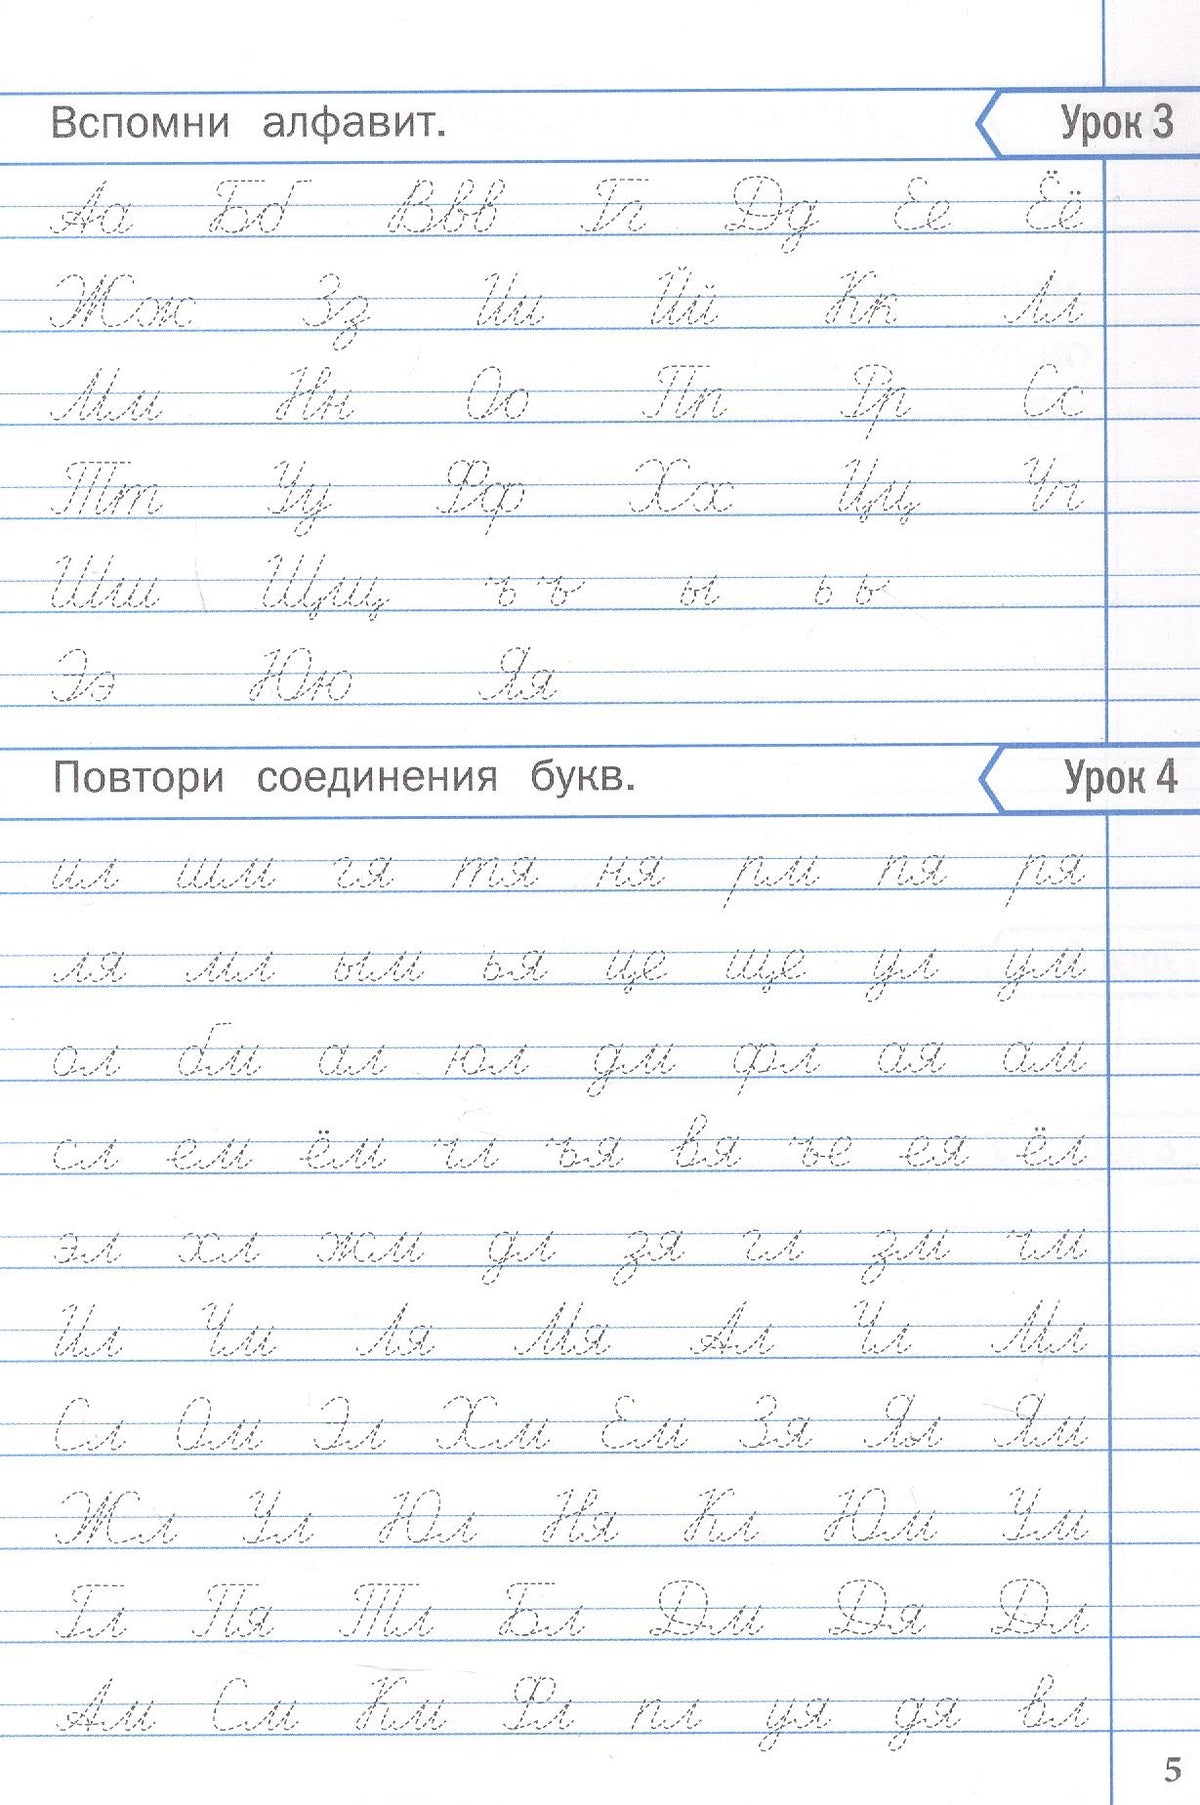 Вспомни алфавит. Урок 3
Аа Бб Ввв Гг Дд Ее Ёё
Жж Зз Ии Йй Кк Лл
Мм Нн Оо Пп Рр Сс
Тт Уу Фф Хх Цц Чч
Шш Щщ ъъ ы ьь
Ээ Юю Яя
Повтори соединения букв. Урок 4
ил шм гя тя ня рм пя ря
ля мл ым ья це ще ул ум
ол бм ал юл дм фл ая ам
сл ем ём чл ъя вя ъе ея ёл
эл хл жм дл зя гл зм чм
Ил Чм Ля Мя Ал Чл Мл
Сл Ом Эл Хм Ем Зя Ял Ям
Жл Ул Юл Ня Кл Юм Ум
Гл Пя Тл Бл Дм Дя Дл
Ам См Км Фл пл уя дя вл
5